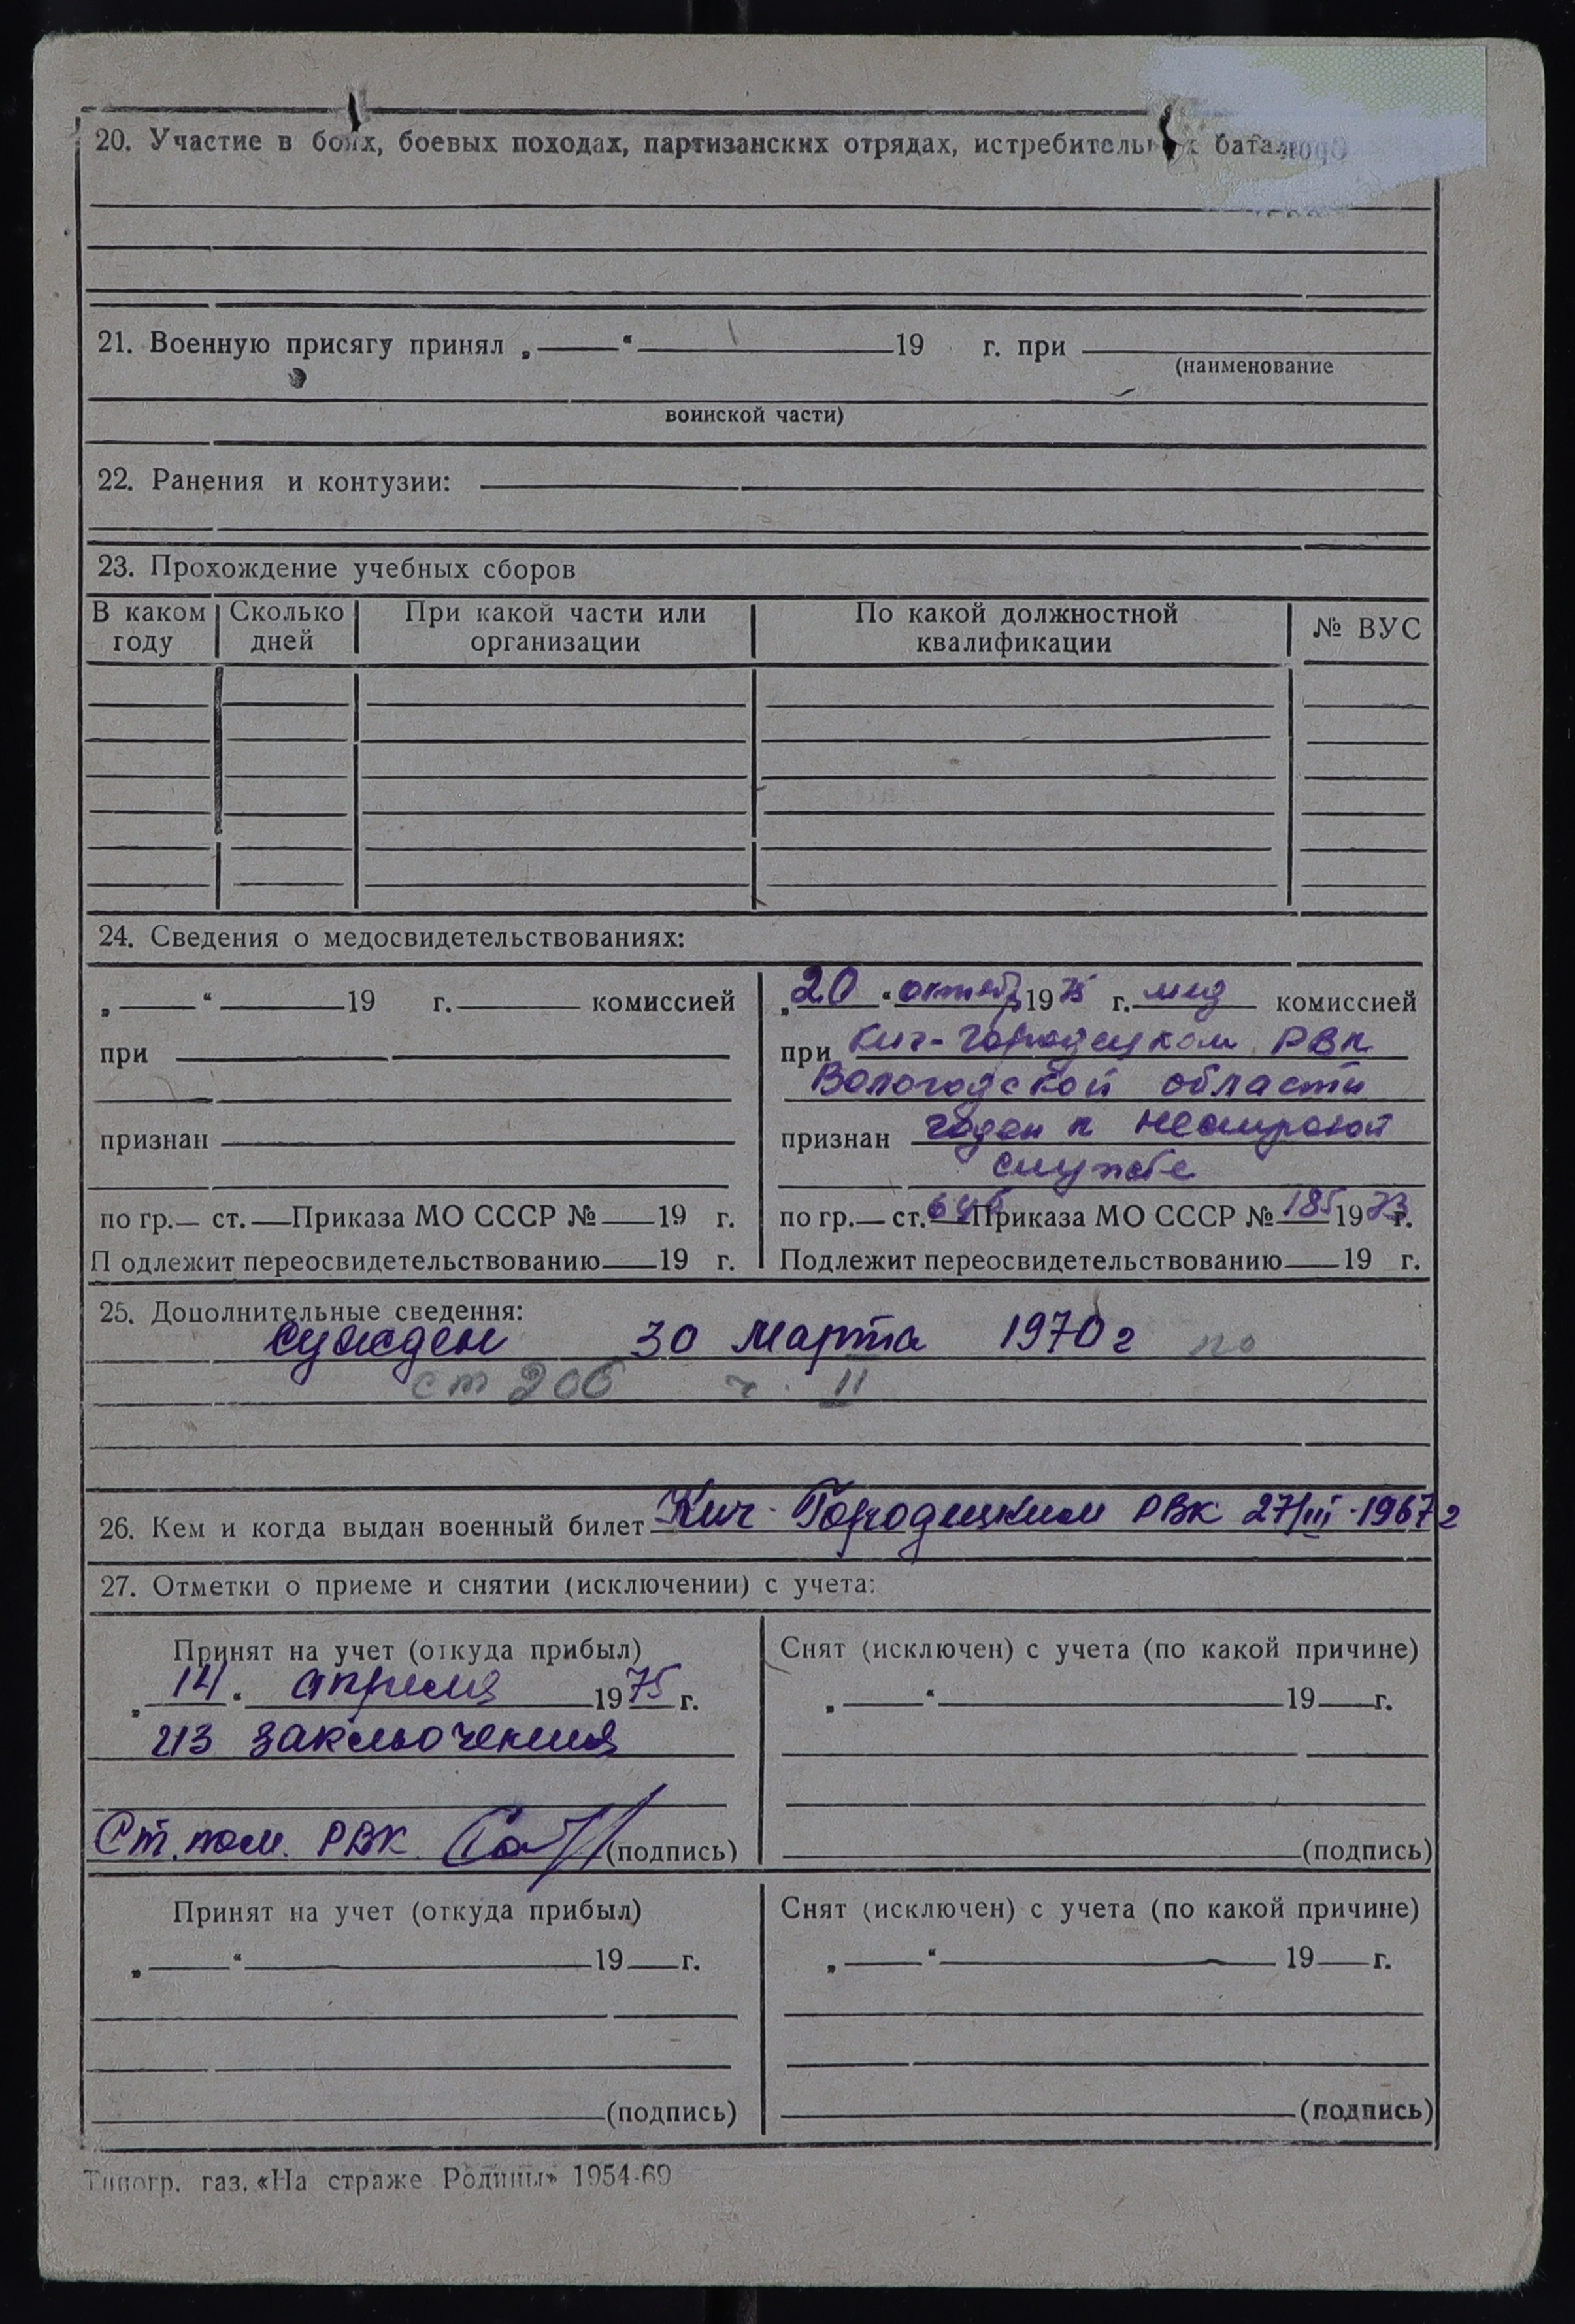 20. Участие в боях, боевых походах, партизанских отрядах, истребительных
21. Военную присягу принял „ “ 19 г. при
(наименование
воинской части)
22. Ранения и контузии:
23. Прохождение учебных сборов
В каком году Сколько дней При какой части или организации По какой должностной квалификации № ВУС
24. Сведения о медосвидетельствованиях:
„ “ 19 г. комиссией
при
признан
по гр. ст. Приказа МО СССР № 19 г.
П одлежит переосвидетельствованию 19 г.
„20“ 1975 г. мед комиссией
при Кич-Городецком РВК
Вологодской области
признан годен к нестроевой
службе
по гр. ст. Приказа МО СССР № 185 1973 г.
Подлежит переосвидетельствованию 19 г.
25. Дополнительные сведения:
Сужден 30 марта 1970 г по
ст 206 ч. II
26. Кем и когда выдан военный билет Кич-Городецким РВК 27/III-1967 г
27. Отметки о приеме и снятии (исключении) с учета:
Принят на учет (откуда прибыл)
„14“ апреля 1975 г.
из заключения
Ст. пом. РВК (подпись)
Снят (исключен) с учета (по какой причине)
„ “ 19 г.
(подпись)
Принят на учет (откуда прибыл)
„ “ 19 г.
(подпись)
Снят (исключен) с учета (по какой причине)
„ “ 19 г.
(подпись)
Типогр. газ. «На страже Родины» 1954-69